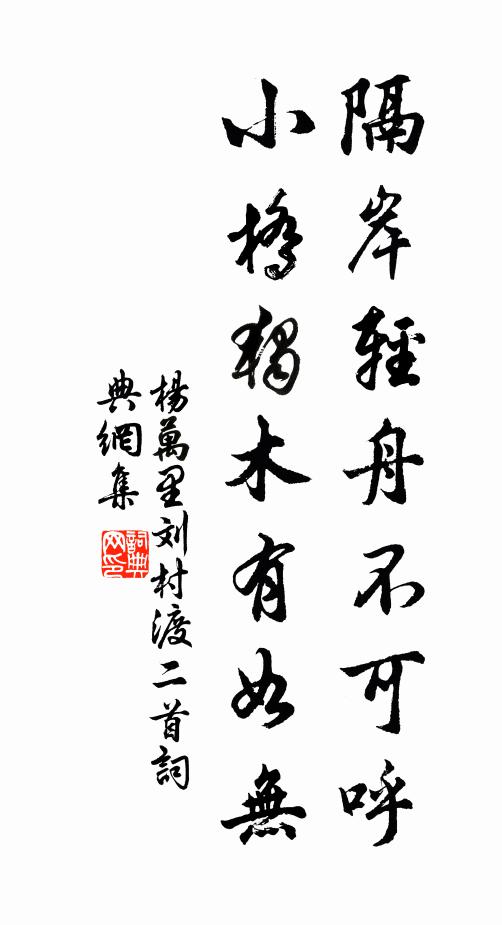 隔岸輕舟不可呼
小橋獨木有如無
楊萬里刘村渡二首詞
典網集
詞典
网印